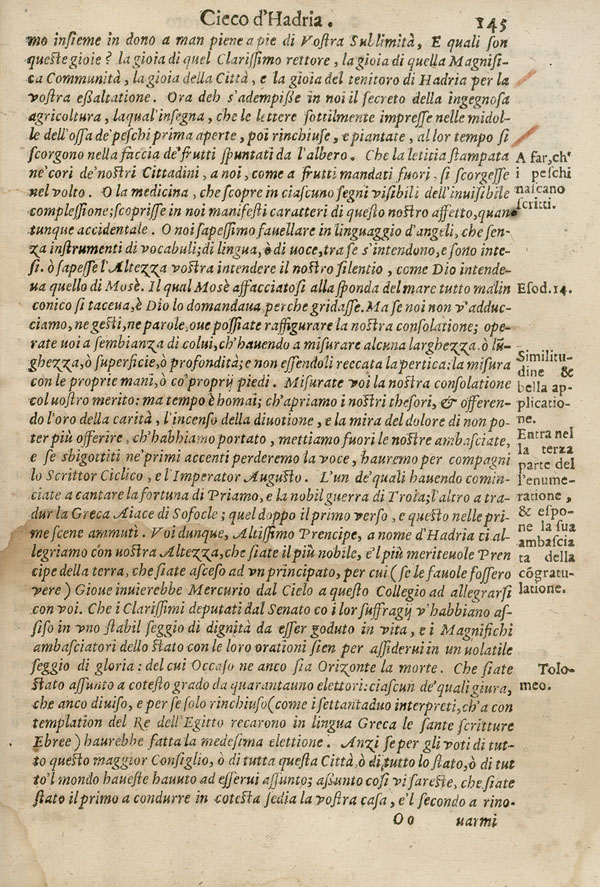 Cieco d'Hadria. 145
mo insieme in dono a man piene a pie di Vostra Sublimità, E quali son
queste gioie? la gioia di quel Clarissimo rettore, la gioia di quella Magnifi-
ca Communità, la gioia della Città, e la gioia del tenitoro di Hadria per la
vostra essaltatione. Ora deh s'adempisse in noi il secreto della ingegnosa
agricoltura, laqual'insegna, che le lettere sottilmente impresse nelle midol-
le dell'ossa de'peschi prima aperte, poi rinchiuse, e piantate, al lor tempo si
scorgono nella faccia de'frutti spuntati da l'albero. Che la letitia stampata
ne'cori de'nostri Cittadini, a noi, come a frutti mandati fuori, si scorgesse
nel volto. O la medicina, che scopre in ciascuno segni visibili dell'inuisibile
complessione; scoprisse in noi manifesti caratteri di questo nostro affetto, quan
tunque accidentale. O noi sapessimo fauellare in linguaggio d'angeli, che sen-
za instrumenti di vocabuli; di lingua, è di uoce, tra se s'intendono, e sono inte-
si. ò sapesse l'Altezza vostra intendere il nostro silentio, come Dio intende-
ua quello di Mosè. Il qual Mosè affacciatosi alla sponda del mare tutto malin
conico si taceua, è Dio lo domandaua perche gridasse. Ma se noi non v'adduc-
ciamo, ne gesti, ne parole, oue possiate raffigurare la nostra consolatione; ope-
rate uoi a sembianza di colui, ch'hauendo a misurare alcuna larghezza. ò lũ-
ghezza, ò superficie, ò profondità; e non essendoli reccata la pertica: la misura
con le proprie mani, ò co'proprij piedi. Misurate voi la nostra consolatione
col uostro merito: ma tempo è homai; ch'apriamo i nostri thesori, & offeren-
do l'oro della carità, l'incenso della diuotione, e la mira del dolore di non po-
ter più offerire, ch'habbiamo portato, mettiamo fuori le nostre ambasciate,
e se sbigottiti ne'primi accenti perderemo la voce, hauremo per compagni
lo Scrittor Ciclico, e l'Imperator Augusto. L'un de'quali hauendo comin-
ciate a cantare la fortuna di Priamo, e la nobil guerra di Troia; l'altro a tra-
dur la Greca Aiace di Sofocle; quel doppo il primo verso, e questo nelle pri-
me scene ammutì. Voi dunque, Altissimo Prencipe, a nome d'Hadria ci al-
legriamo con uostra Altezza, che siate il più nobile, e'l più meriteuole Pren
cipe della terra, che siate asceso ad vn principato, per cui (se le fauole fossero
vere) Gioue inuierebbe Mercurio dal Cielo a questo Collegio ad allegrarsi
con voi. Che i Clarissimi deputati dal Senato co i lor suffragij v'habbiano as-
siso in vno stabil seggio di dignità da esser goduto in vita, e i Magnifichi
ambasciatori dello stato con le loro orationi sien per assiderui in un uolatile
seggio di gloria: del cui Occaso ne anco sia Orizonte la morte. Che siate
stato assunto a cotesto grado da quarantauno elettori: ciascun de'quali giura,
che anco diuiso, e per se solo rinchiuso (come i settantaduo interpreti, ch'a con
templation del Re dell'Egitto recarono in lingua Greca le sante scritture
Ebree) haurebbe fatta la medesima elettione. Anzi se per gli voti di tut-
to questo maggior Consiglio, ò di tutta questa Città, ò di tutto lo stato, ò di tut
to'l mondo haueste hauuto ad esserui assunto; assunto cosi vi sareste, che siate
stato il primo a condurre in cotesta sedia la vostra casa, e'l secondo a rino-
Oo uarmi
A far, ch'
i peschi
nascano
scritti.
Esod. 14.
Similitu-
dine &
bella ap-
plicatio-
ne.
Entra nel
la terza
parte del
l'enume-
ratione,
& espo-
ne la sua
ambascia
ta della
cõgratu-
latione.
Tolo-
meo.